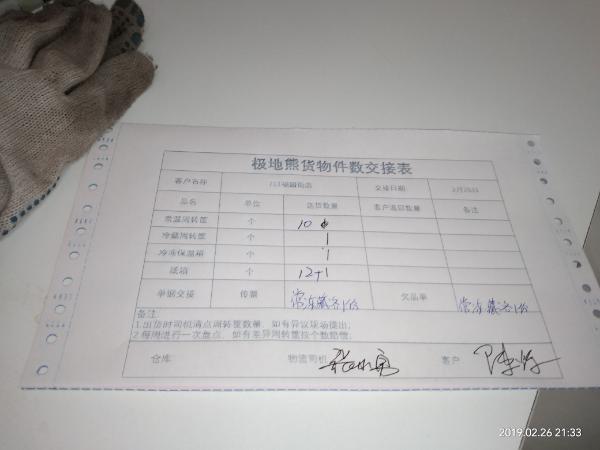 极地熊货物件数交接表
客户名称 交接日期 2月26日
品名 单位 送货数量 客户退回数量 备注
常温周转筐 个 10
冷藏周转筐 个 1
冷冻保温箱 个 1
纸箱 个 12+1
单据交接 传票 常冻藏各1份 欠品单 常冻藏各1份
备注
1.出货时司机清点周转筐数量，如有异议现场提出；
2.每周进行一次盘点，如有差异周转筐按个数赔偿；
仓库 物流司机 客户
2019.02.26 21:33